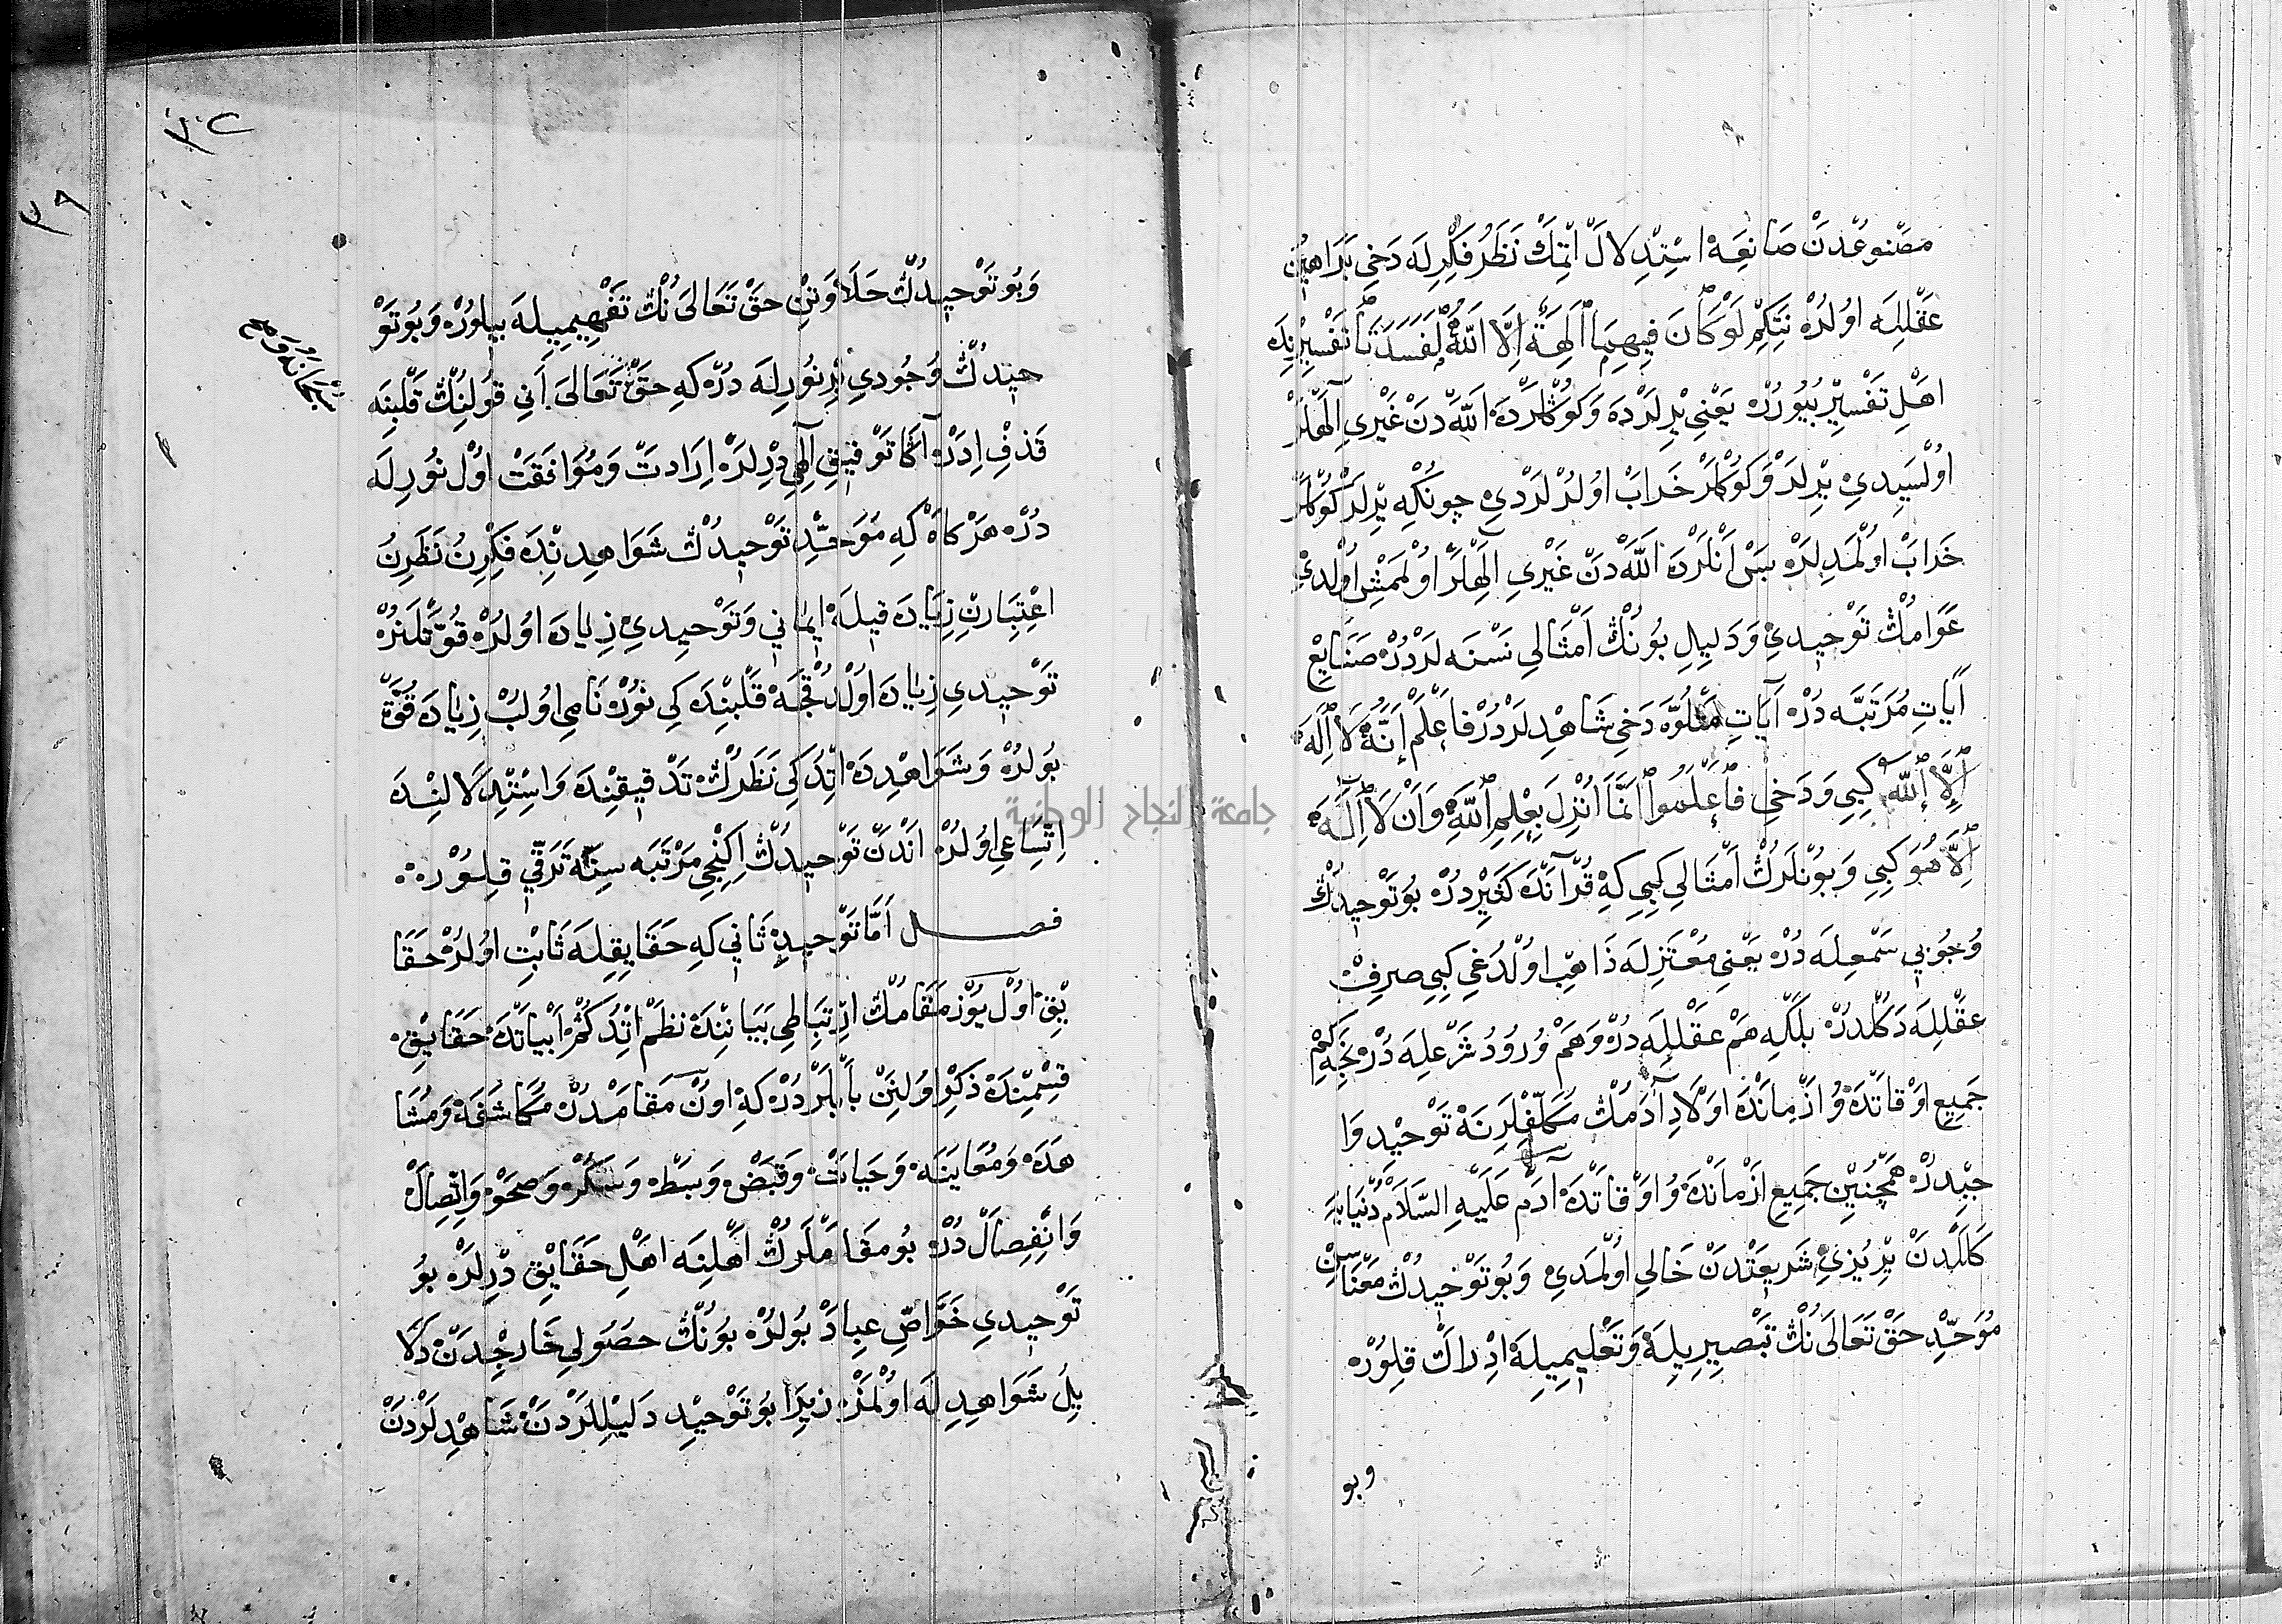 مَصْنُوعْدَنْ صَانِعَهْ اسْتِدْلالْ اتْمَكْ نَظَرُ فِكْرِلَهْ دَخِي بَرَاهِينِ
عَقْلِلَه اوُلُرْ نِتَكِمْ لَوْ كَانَ فِيهِمَا آلِهَةٌ إِلَّا اللَّهُ لَفَسَدَتَا تَفْسِيرِنْدَه
اهْلِ تَفْسِيرْ بُيُورُرْ يَعْنِي يِرْلَرْدَه وَكُوكْلَرْدَه اللّٰهْ دَنْ غَيْرِي الَهْلَرْ
اوُلْسَيِدِي يِرْلَرْ وَكُوكْلَرْ خَرَابْ اوُلُرْلَرْدِي چونْكِه يِرْلَرْ كُوكْلَرْ
خَرَابْ اوُلْمَدِيلَرْ بَسْ انْلَرْدَه اللّٰهْ دَنْ غَيْرِي الَهْلَرْ اوُلْمَمِشْ اوُلْدِي
عَوَامُكْ تَوْحِيدِي وَدَلِيلِ بُونُكْ امْثَالِي نَسْنَه لَرْدُرْ صَنَايِعْ
آيَاتِ مُرَتَّبَه دُرْ آيَاتِ مَتْلُوَّه دَخِي شَاهِدْلَرْدُرْ فَاعْلَمْ أَنَّهُ لَا إِلَهَ
إِلَّا اللَّهُ كِبِي وَدَخِي فَاعْلَمُوا أَنَّمَا أُنْزِلَ بِعِلْمِ اللَّهِ وَأَنْ لَا إِلَهَ
إِلَّا هُوَ كِبِي وَبُونْلَرُكْ امْثَالِي كِبِي كِهْ قُرْآنْدَه كَثِيرْدُرْ بُو تَوْحِيدُكْ
وُجُوبِي سَمْعِلَه دُرْ يَعْنِي مُعْتَزِلَه ذَاهِبْ اوُلْدُغِي كِبِي صِرفْ
عَقْلِلَه دَكُلْدُرْ بَلْكِه هَمْ عَقْلِلَه دُرْ وَهَمْ وُرُودُ شَرْعِلَه دُرْ نِتَه كِمْ
جَمِيعِ اوْقَاتْدَه وُ ازْمَانْدَه اوْلَادِ آدَمُكْ مُكَلَّفْلَرِنَه تَوْحِيدْ وَا
جِبْدُرْ هَمْچُنِينْ جَمِيعِ ازْمَانْدَه وُ اوْقَاتْدَه آدَمْ عَلَيْهِ السَّلَامْ دُنْيَايَه
كَلَلْدَنْ يِرْيُزِي شَرِيعَتْدَنْ خَالِي اوُلْمَدِي وَبُو تَوْحِيدُكْ مَعْنَاسِنْ
مُوَحِّدْ حَقْ تَعَالَى نُكْ تَبْصِيرِيلَه وَتَعْلِيمِيلَه ادْرَاكْ قِلُورْ
وبو
٣٢
٣٨
وَبُو تَوْحِيدُكْ حَلَاوَتِنْ حَقْ تَعَالَى نُكْ تَفْهِيمِيلَه بِيلُورْ وَبُو تَوْ
حِيدُكْ وُجُودِي بِرْ نُورِلَه دُرْ كِه حَقْ تَعَالَى اَنِي قُولِنُكْ قَلْبِنَه
قَذْفْ اِدَرْ آكَا تَوْفِيقِ الَهِي دِرْلَرْ اِرَادَتْ وَمُوَافَقَتْ اوُلْ نُورِلَه
دُرْ هَرْ كَاهْ كِه مُوَحِّدْ تَوْحِيدُكْ شَوَاهِدِنْدَه فِكْرِنُ نَظَرِنُ
اعْتِبَارِنْ زِيَادَه قِيلَه ايمَانِي وَتَوْحِيدِي زِيَادَه اوُلُرْ قُوَّتْلَنُرْ
تَوْحِيدِي زِيَادَه اوُلْدُقْجَه قَلْبِنْدَه كِي نُورْ نَامِي اوُلُبْ زِيَادَه قُوَّتْ
بُولُرْ وَشَوَاهِدَه اتْدُكِي نَظَرُكْ تَدْقِيقِنْدَه وَاسْتِدْلَالِنْدَه
اِتِّسَاعِي اوُلُرْ انْدَنْ تَوْحِيدُكْ اِكِنْجِي مَرْتَبَه سِنَه تَرَقِّي قِلُورْ
فصل امَّا تَوْحِيدِ ثَانِي كِه حَقَايِقِلَه ثَابِتْ اوُلُرْ حَقَا
يِقْ اوُلْ يُوزْ مَقَامُكْ ارْتِبَاطِي بَيَانِنْدَه نَظْمْ اتْدُكُمْزْ ابْيَاتْدَه حَقَايِقْ
قِسْمِنْدَه ذِكْرْ اوُلُنَنْ بَابْلَرْدُرْ كِه اونْ مَقَامْدُرْ مُكَاشَفَه وَمُشَا
هَدَه وَمُعَايَنَه وَحَيَاتْ وَقَبْضْ وَبَسْطْ وَسُكْرْ وَصَحْوْ وَاتِّصَالْ
وَانْفِصَالْ دُرْ بُو مَقَامْلَرُكْ اهْلِنَه اهْلِ حَقَايِقْ دِرْلَرْ بُو
تَوْحِيدِي خَوَاصِّ عِبَادْ بُولُرْ بُونُكْ حُصُولِي خَارِجْدَنْ دَلَا
يِلُ شَوَاهِدِلَه اوُلْمَزْ زِيرَا بُو تَوْحِيدْ دَلِيلْلَرْدَنْ شَاهِدْلَرْدَنْ
جامعة النجاح الوطنية